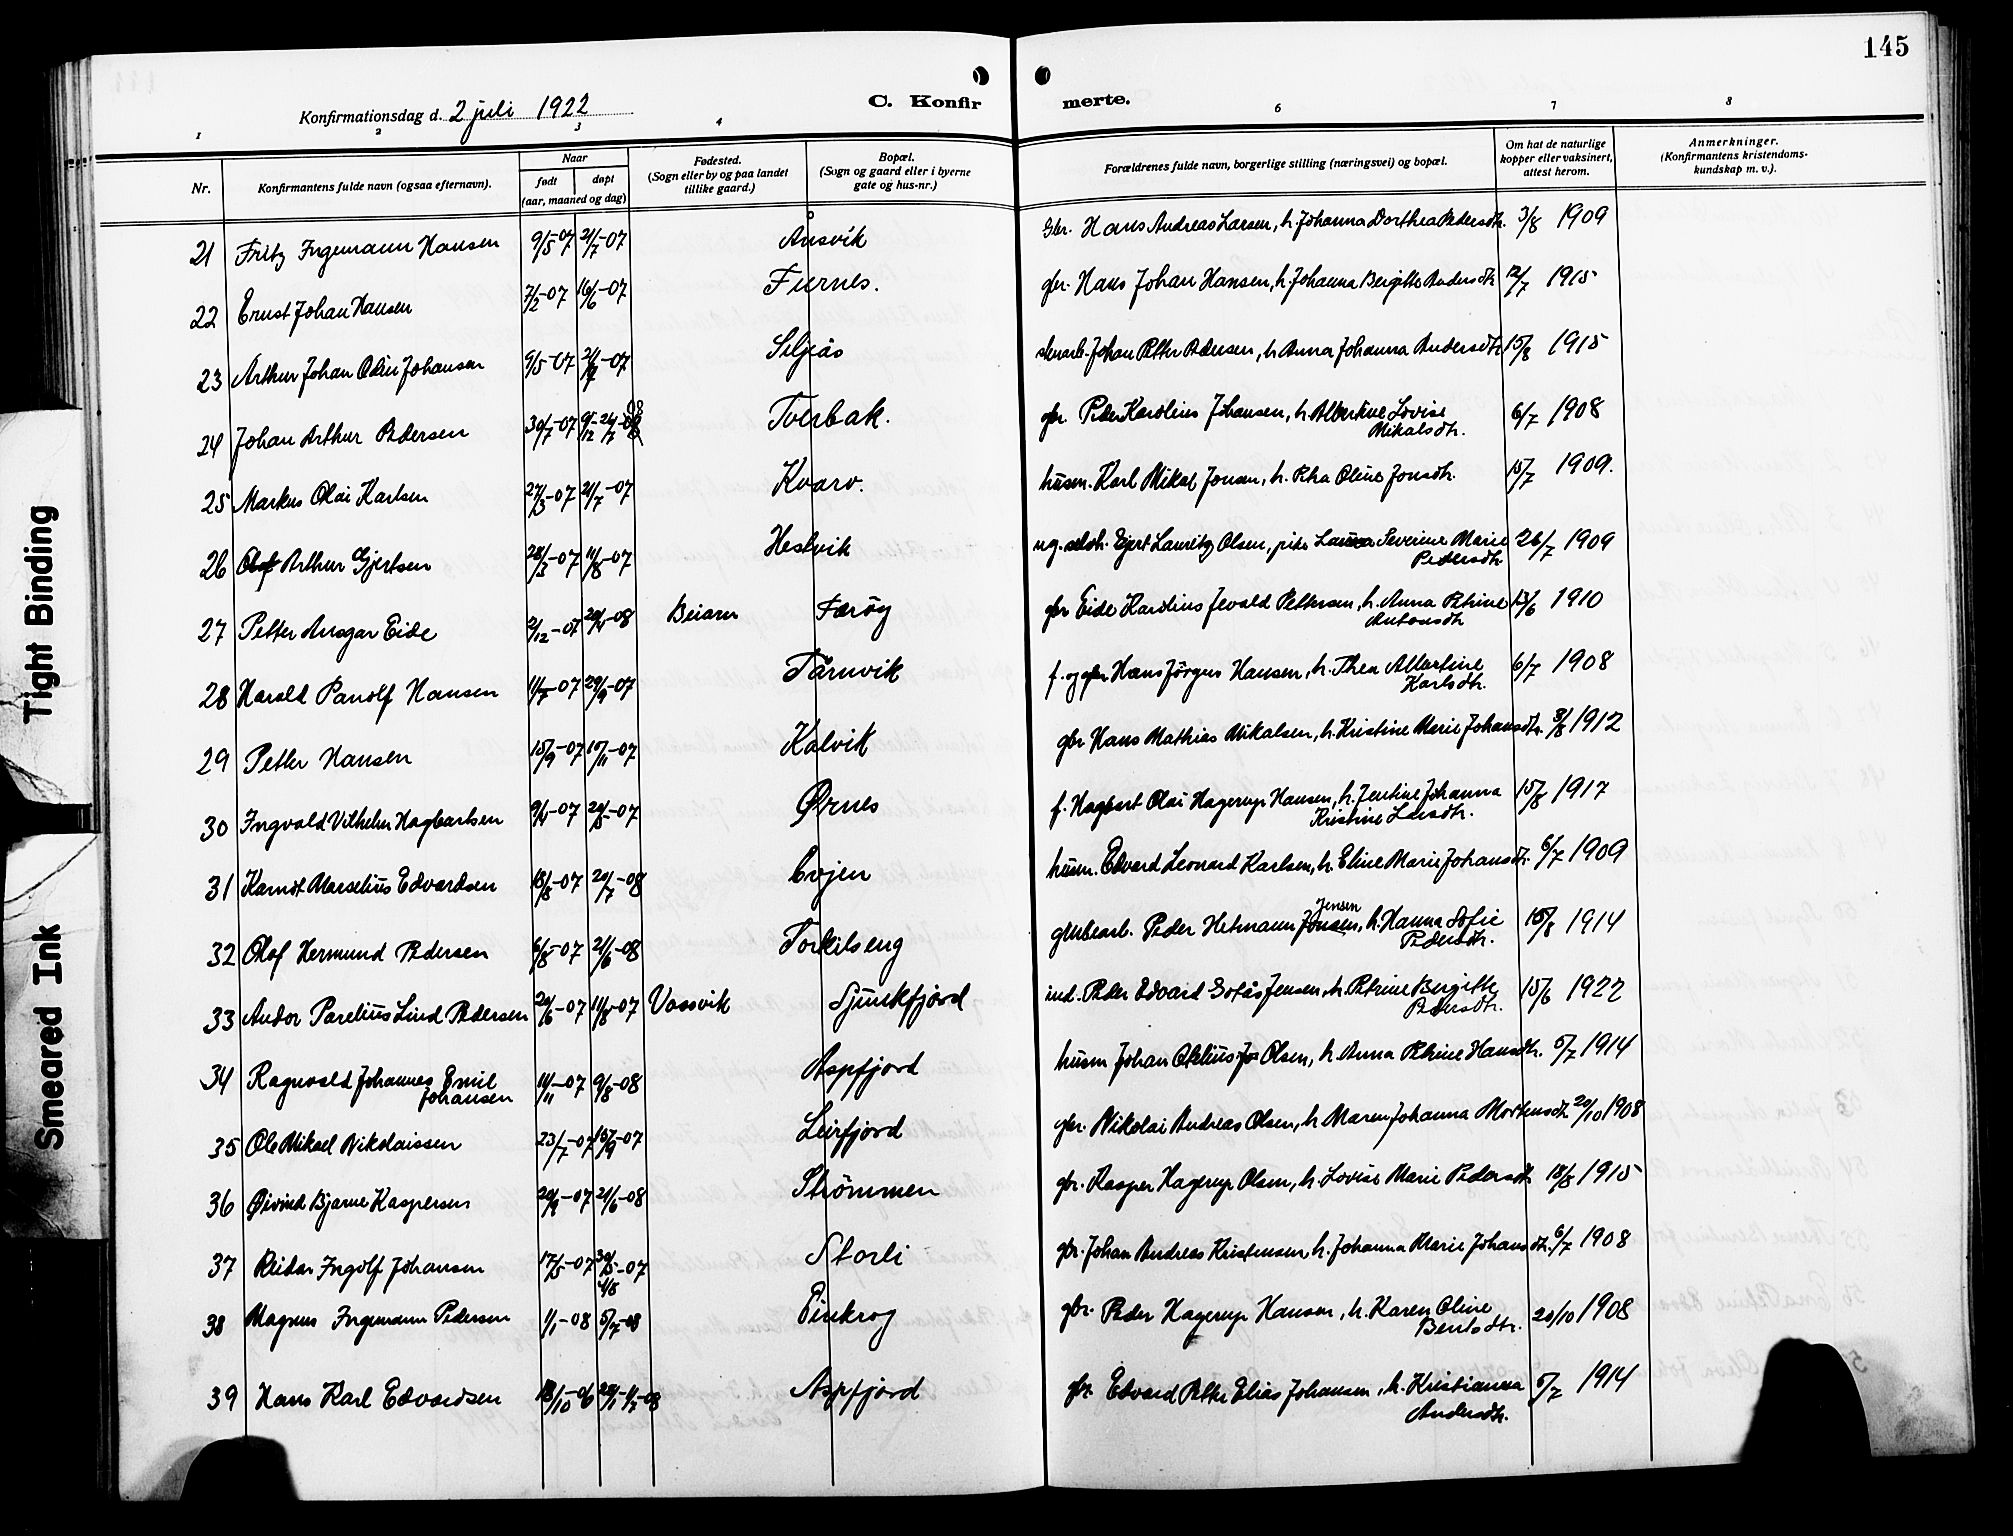 145
Konfirmationsdag d. 2 juli 1922
C. Konfir merte.
1 2 3 4 6 7 8
Nr.
Konfirmantens fulde navn (ogsaa efternavn).
Naar
født døpt
(aar, maaned og dag)
Fødested.
(Sogn eller by og paa landet
tillike gaard.)
Bopæl.
(Sogn og gaard eller i byerne
gate og hus-nr.)
Forældrenes fulde navn, borgerlige stilling (næringsvei) og bopæl.
Om hat de naturlige
kopper eller vaksinert,
attest herom.
Anmerkninger.
(Konfirmantens kristendoms-
kundskap m. v.).
21 Fritz Ingemann Hansen 9/5-07 21/7-07 Åusvik Gbr. Hans Andreas Larsen, h. Johanna Dorthea Pedersdtr. 3/8 1909
22 Ernst Johan Hansen 7/2-07 16/6-07 Furnes. gbr. Hans Johan Hansen, h. Johanna Bergitte Andersdtr 12/7 1915
23 Arthur Johan Odin Johansen 9/5-07 21/7-07 Seljeås Johan Petter Pedersen, h. Anna Johanna Andersdtr 15/8 1915
24 Johan Arthur Pedersen 30/7-07 Tverbak. gbr. Peder Karolius Johansen, h. Albertine Lovise 6/7 1908
Mikalsdtr.
25 Markus Olai Karlsen 27/3-07 21/7-07 Kvarv. husm. Karl Mikal Jonsen, h. Petra Oline Jonsdtr. 15/7 1909.
26 Olaf Arthur Gjertsen 28/3-07 11/8-07 Hestvik ug. Ejert Lauritz Olsen, pike Laura Severine Marie 26/7 1909
Pedersdtr
27 Petter Ansgar Eide 2/12-07 20/4-08 Beiarn Færøy gbr Eide Karolius Jevald Pettersen, h. Anna Petrine 13/6 1910
Antonsdtr
28 Harald Panolf Hansen 11/7-07 29/9-07 Tårnvik f. og gbr Hans Jörgen Hansen, h. Thea Albertine 6/7 1908
Karlsdtr.
29 Petter Hansen 15/9-07 10/11-07 Kalvik gbr Hans Mathias Mikalsen, h. Kristine Marie Johansdtr. 3/8 1912
30 Ingvald Vilhelm Hagbartsen 9/4-07 20/5-07 Ørnes f. Hagbart Olai Hagerup Hansen, h. Jentine Johanna 15/8 1917
Kristine Larsdtr.
31 Karndt Marselius Edvardsen 18/8-07 20/7-08 Evjen husm. Edvard Leonard Karlsen, h. Eline Marie Johansdtr. 6/7 1909
32 Olaf Hermund Pedersen 6/8-07 21/6-08 Torkilseng grubearb. Peder Hetmann Jonsen Jensen, h. Hanna Sofie 15/8 1914
Pedersdtr.
33 Andor Parelius Lind Pedersen 20/6-07 11/8-07 Vassvik Sjunkfjord ind. Peder Edvard Gotås Jensen, h. Petrine Bergitte 15/6 1922
Pedersdtr.
34 Ragnvald Johannes Emil 14/11-07 9/8-08 Aspfjord husm Johan Otelius Olsen, h. Anna Petrine Hansdtr. 5/7 1914
Johansen
35 Ole Mikael Nikolaissen 23/7-07 15/9-07 Leirfjord gbr. Nikolai Andreas Olsen, h Maren Johanna Mortensdtr 20/10 1908
36 Øivind Bjarne Kaspersen 20/9-07 21/6-08 Strömmen gbr. Kasper Hagerup Olsen, h. Lovise Marie Pedersdtr 18/8 1915
37 Reidar Ingolf Johansen 17/5-07 30/5-07 4/8 Storli gbr. Johan Andreas Kristensen, h. Johanna Marie Johansdtr. 6/7 1908
38 Magnus Ingemann Pedersen 1/1-08 5/7-08 Finkrog gbr. Peder Hagerup Hansen, h. Karen Oline 20/10 1908
Bentsdtr.
39 Hans Karl Edvardsen 13/10-06 Aspfjord gbr. Edvard Petter Elias Johansen, h. Kristianna 5/7 1914
Andersdtr.
Tight Binding
Smeared Ink